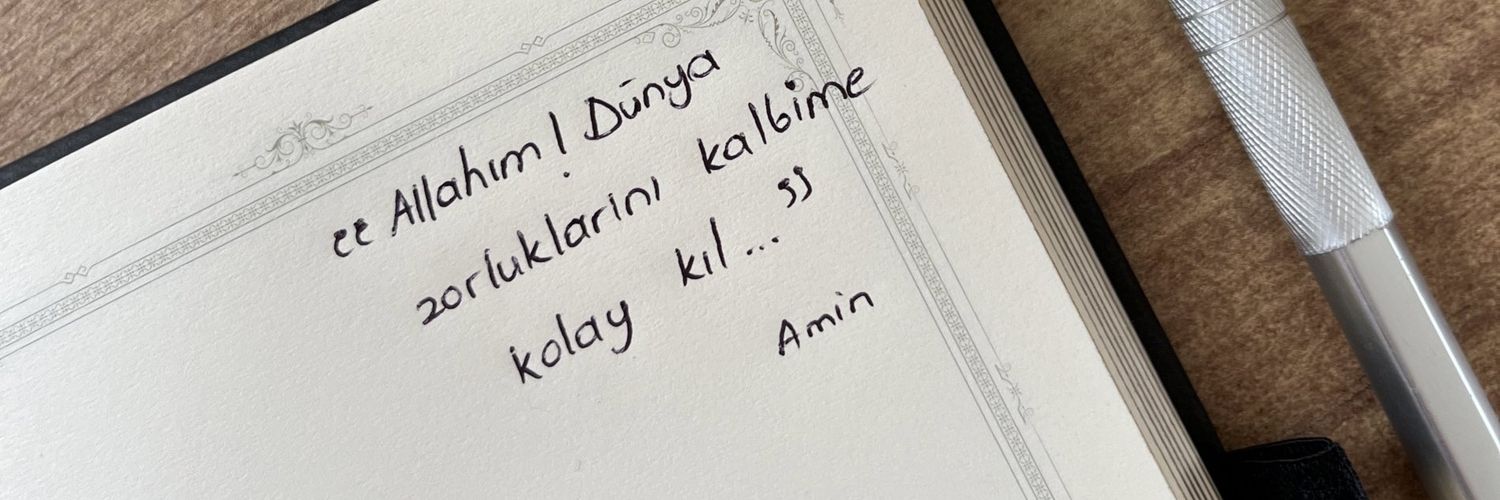 “Allahım! Dünya
zorluklarını kalbime
kolay kıl...”
Amin